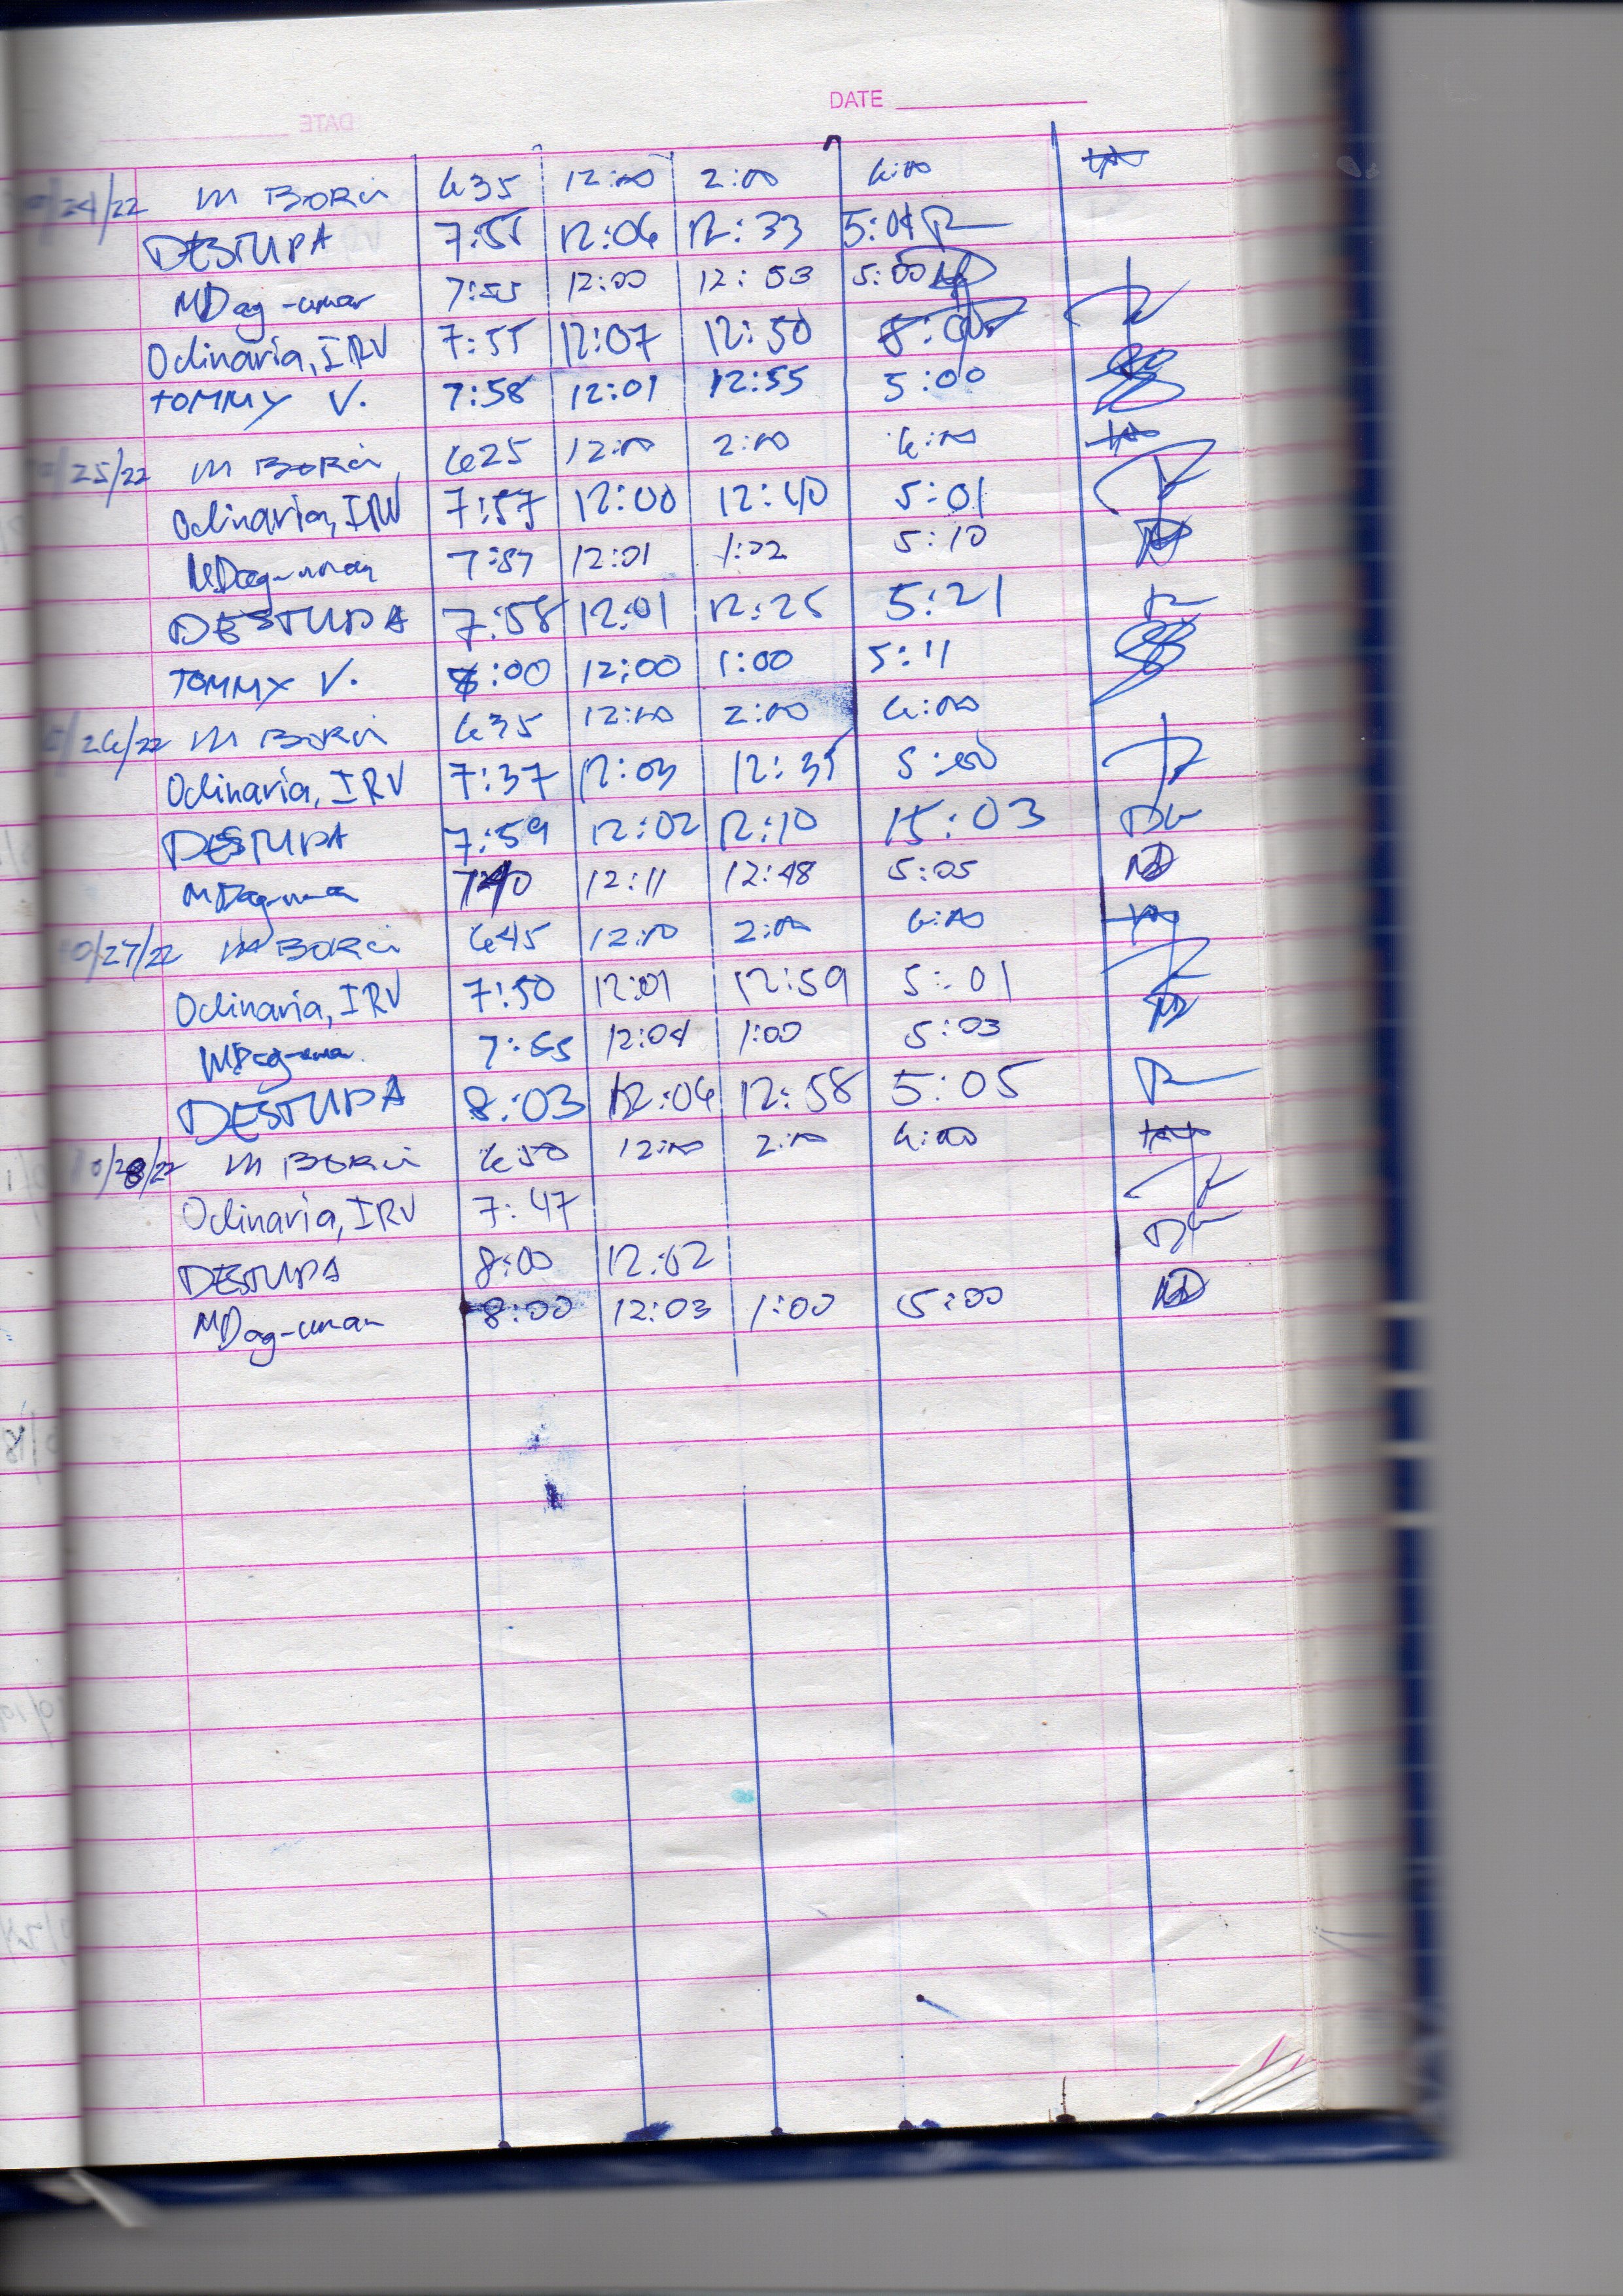 DATE
/24/22 M BORCI 635 12:00 2:00 6:00
DESTUPA 7:55 12:06 12:33 5:04
MDag-uman 7:55 12:00 12:53 5:00
Odinaria, IRV 7:55 12:07 12:50
TOMMY V. 7:58 12:01 12:55 5:00
/25/22 M BORCI 625 12:00 2:00 6:00
Odinaria, IRV 7:57 12:00 12:40 5:01
MDag-uman 7:57 12:01 1:02 5:10
DESTUPA 7:58 12:01 12:25 5:21
TOMMY V. 8:00 12:00 1:00 5:11
/26/22 M BORCI 635 12:00 2:00 6:00
Odinaria, IRV 7:37 12:03 12:35 5:00
DESTUPA 7:59 12:02 12:10 15:03
MDag-uman 7:40 12:11 12:48 5:05
10/27/22 M BORCI 645 12:00 2:00 6:00
Odinaria, IRV 7:50 12:01 12:59 5:01
MDag-uman 7:55 12:04 1:00 5:03
DESTUPA 8:03 12:06 12:58 5:05
10/28/22 M BORCI 650 12:00 2:00 6:00
Odinaria, IRV 7:47
DESTUPA 8:00 12:02
MDag-uman 8:00 12:03 1:00 5:00